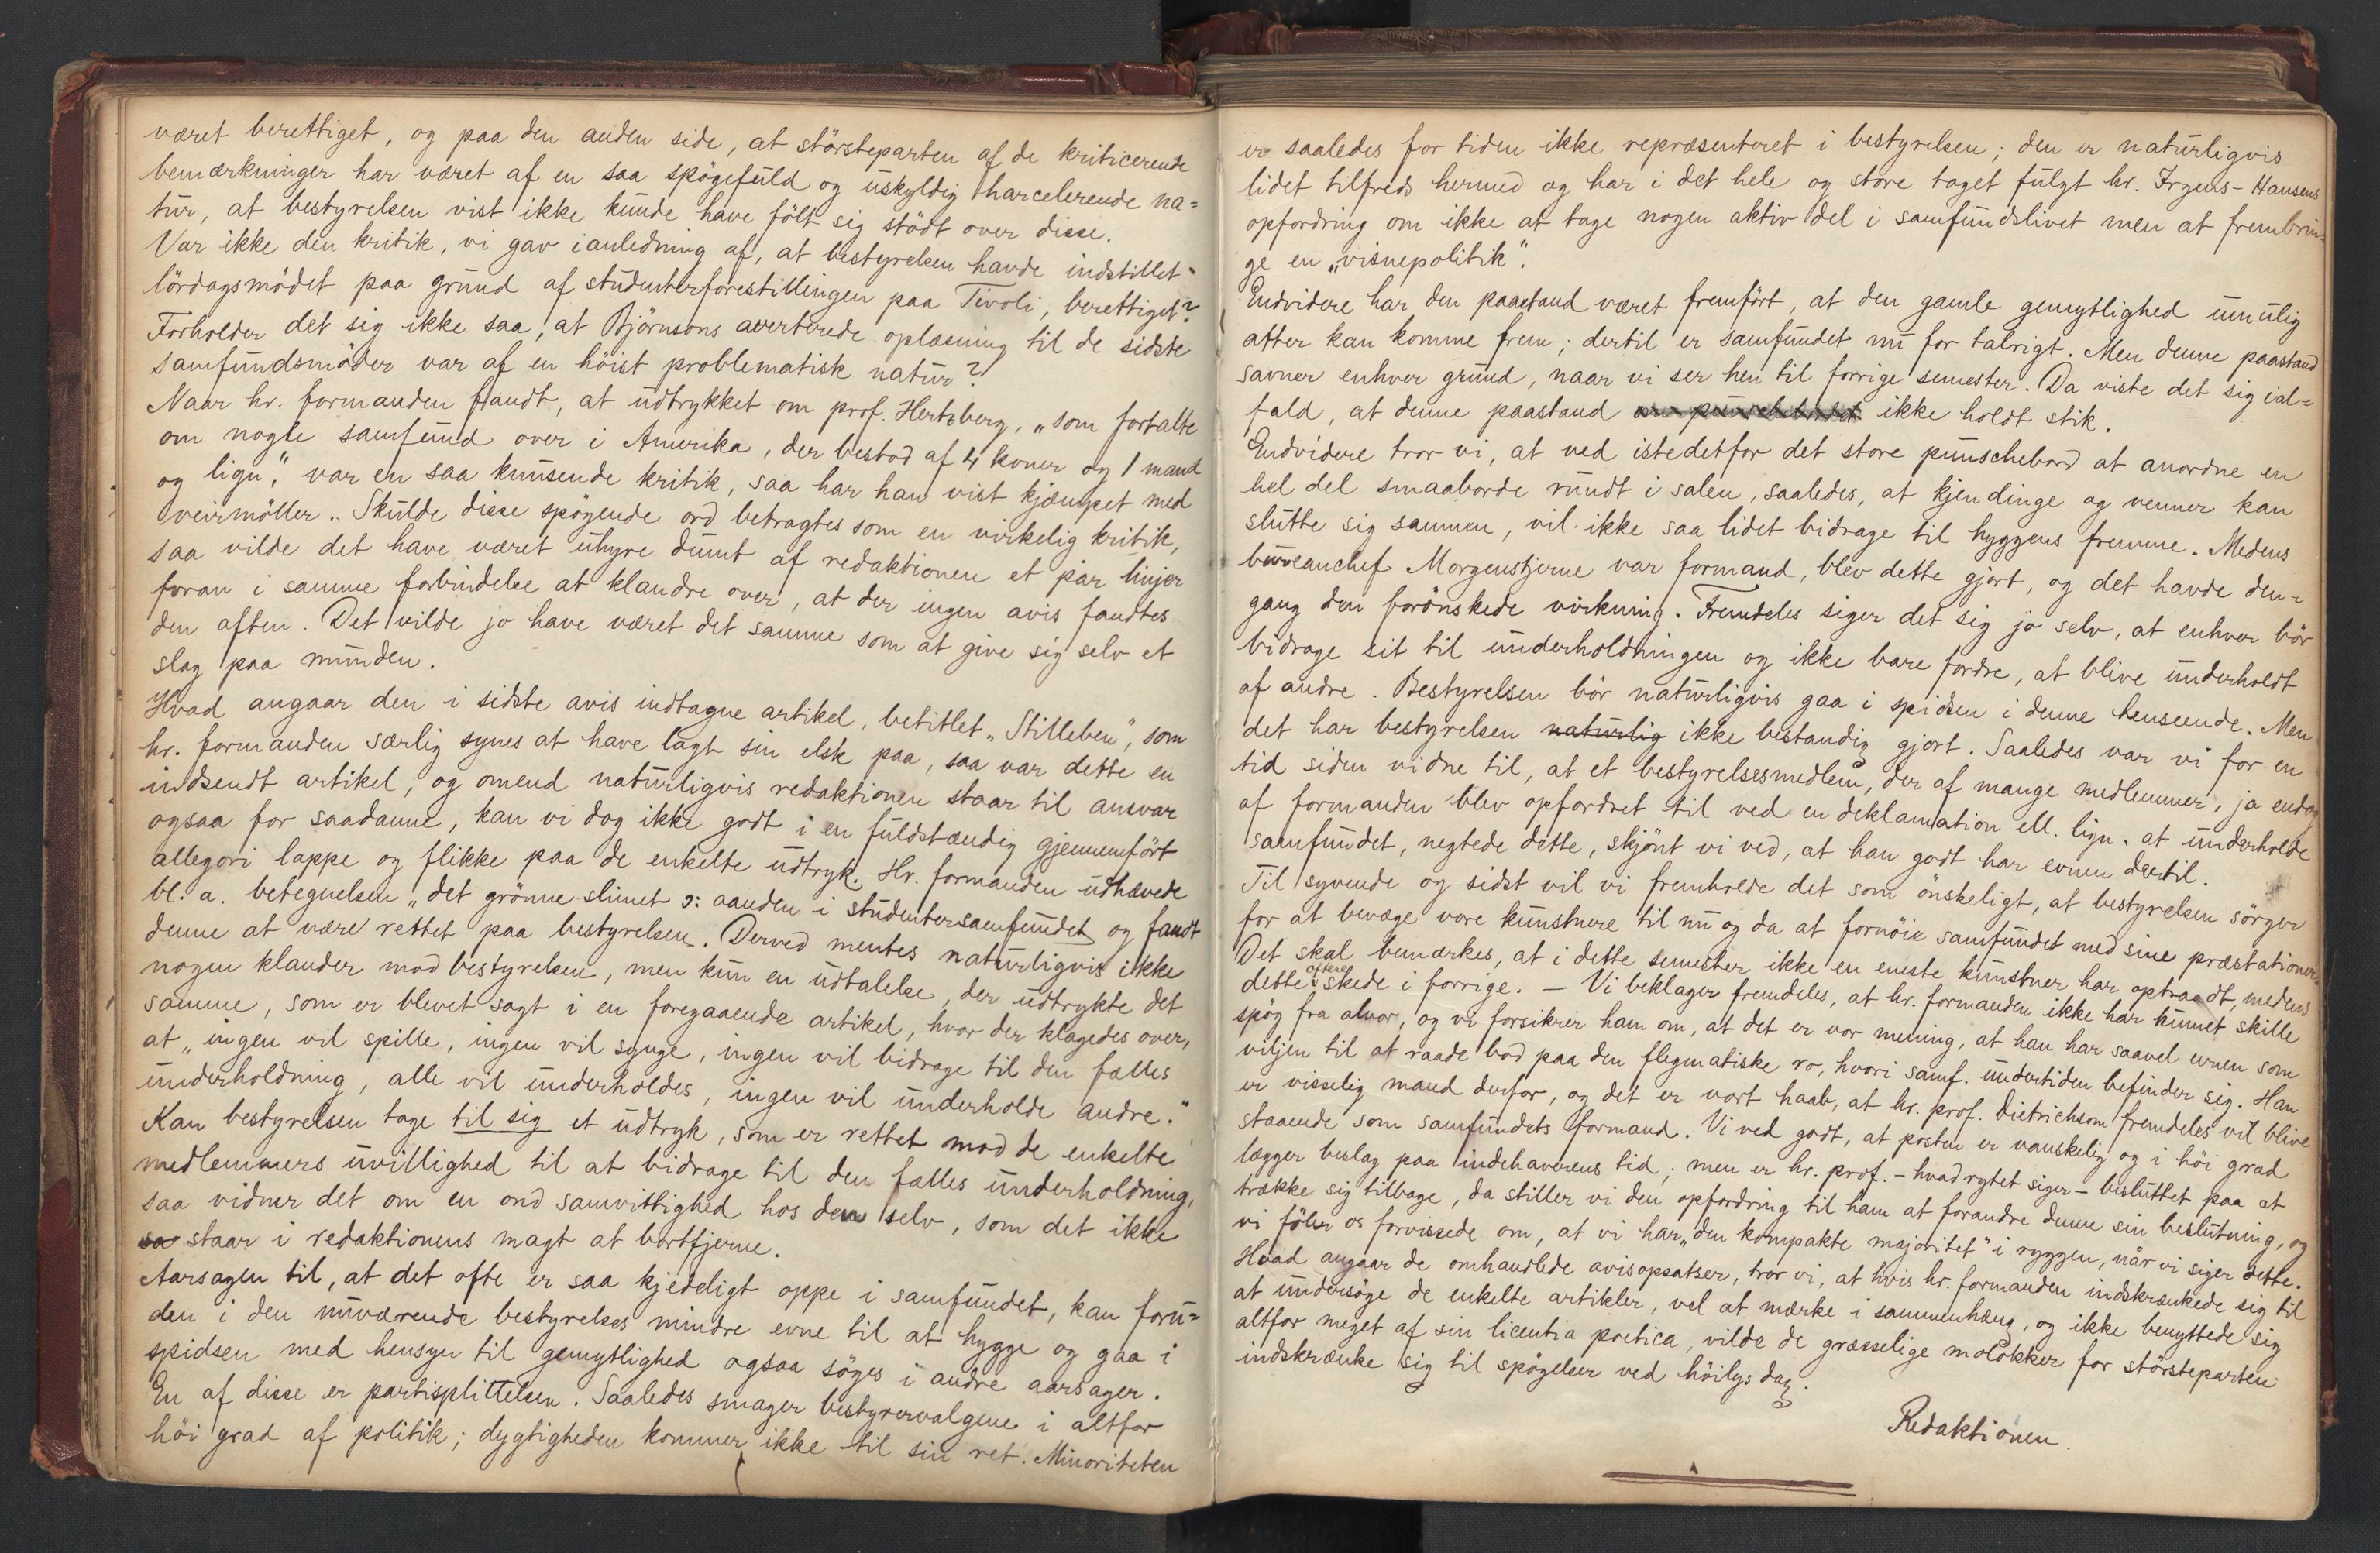 været berettiget, og paa den anden side, at störsteparten af de kriticerende
bemærkninger har været af en saa spögefuld og uskyldig harcelerende na=
tur, at bestyrelsen vist ikke kunde have fölt sig stödt over disse.
Var ikke den kritik, vi gav i anledning af, at bestyrelsen havde indstillet
lördagsmödet paa grund af studenterforestillingen paa Tivoli, berettiget?
Forholder det sig ikke saa, at Björnsons averterede oplæsning til de sidste
samfundsmöder var af en höist problematisk natur?
Naar hr. formanden fandt, at udtrykket om prof. Hertzberg, „som fortalte
om nogle samfund over i Amerika, der bestod af 4 koner og 1 mand
og lign.", var en saa knusende kritik, saa har han vist kjæmpet med
veirmöller. Skulde disse spögende ord betragtes som en virkelig kritik,
saa vilde det have været uhyre dumt af redaktionen et par linjer
foran i samme forbindelse at klandre over, at der ingen avis fandtes
den aften. Det vilde jo have været det samme som at give sig selv et
slag paa munden.
Hvad angaar den i sidste avis indtagne artikel, betitlet „Stilleben", som
hr. formanden særlig synes at have lagt sin elsk paa, saa var dette en
indsendt artikel, og omend naturligvis redaktionen staar til ansvar
ogsaa for saadanne, kan vi dog ikke godt i en fuldstændig gjennemfört
allegori lappe og flikke paa de enkelte udtryk. Hr. formanden udhævede
bl. a. betegnelsen „det grönne slimet ɔ: aanden i studentersamfundet og fandt
denne at være rettet paa bestyrelsen. Derved mentes naturligvis ikke
nogen klander mod bestyrelsen, men kun en udtalelse, der udtrykte det
samme, som er blevet sagt i en foregaaende artikel, hvor der klagedes over,
at „ingen vil spille, ingen vil synge, ingen vil bidrage til den fælles
underholdning, alle vil underholdes, ingen vil underholde andre."
Kan bestyrelsen tage til sig et udtryk, som er rettet mod de enkelte
medlemmers uvillighed til at bidrage til den fælles underholdning,
saa vidner det om en ond samvittighed hos den selv, som det ikke
sa staar i redaktionens magt at bortfjerne.
Aarsagen til, at det ofte er saa kjedeligt oppe i samfundet, kan foru=
den i den nuværende bestyrelses mindre evne til at hygge og gaa i
spidsen med hensyn til gemytlighed ogsaa söges i andre aarsager.
En af disse er partisplittelsen. Saaledes smager bestyrervalgene i altfor
höi grad af politik; dygtigheden kommer ikke til sin ret. Minoriteten
er saaledes for tiden ikke repræsenteret i bestyrelsen; den er naturligvis
lidet tilfreds hermed og har i det hele og store taget fulgt hr. Irgens-Hansens
opfordring om ikke at tage nogen aktiv del i samfundslivet men at frembrin=
ge en „visnepolitik".
Endvidere har den paastand været fremfört, at den gamle gemytlighed umulig
atter kan komme frem; dertil er samfundet nu for talrigt. Men denne paastand
savner enhver grund, naar vi ser hen til forrige semester. Da viste det sig ial=
fald, at denne paastand ikke holdt stik.
Endvidere tror vi, at ved istedetfor det store punschebord at anordne en
hel del smaaborde rundt i salen, saaledes, at kjendinge og venner kan
slutte sig sammen, vil ikke saa lidet bidrage til hyggens fremme. Medens
bureauchef Morgenstjerne var formand, blev dette gjort, og det havde den=
gang den forönskede virkning. Fremdeles siger det sig jo selv, at enhver bör
bidrage sit til underholdningen og ikke bare fordre, at blive underholdt
af andre. Bestyrelsen bör naturligvis gaa i spidsen i denne henseende. Men
det har bestyrelsen naturlig ikke bestandig gjort. Saaledes var vi for en
tid siden vidne til, at et bestyrelsesmedlem, der af mange medlemmer, ja endog
af formanden blev opfordret til ved en deklamation ell. lign. at underholde
samfundet, negtede dette, skjönt vi ved, at han godt har evnen dertil.
Til syvende og sidst vil vi fremholde det som önskeligt, at bestyrelsen sörger
for at bevæge vore kunstnere til nu og da at fornöie samfundet med sine præstationer.
Det skal bemærkes, at i dette semester ikke en eneste kunstner har optraadt, medens
dette oftere skede i forrige. — Vi beklager fremdeles, at hr. formanden ikke har kunnet skille
spög fra alvor, og vi forsikrer ham om, at det er vor mening, at han har saavel evnen som
viljen til at raade bod paa den flegmatiske ro, hvori samf. undertiden befinder sig. Han
er visselig mand derfor, og det er vort haab, at hr. prof. Dietrichson fremdeles vil blive
staaende som samfundets formand. Vi ved godt, at posten er vanskelig og i höi grad
lægger beslag paa indehaverens tid; men er hr. prof. – hvad rygtet siger – besluttet paa at
trække sig tilbage, da stiller vi den opfordring til ham at forandre denne sin beslutning, og
vi föler os forvissede om, at vi har „den kompakte majoritet" i ryggen, når vi siger dette.
Hvad angaar de omhandlede avisopsatser, tror vi, at hvis hr. formanden indskrænkede sig til
at undersöge de enkelte artikler, vel at mærke i sammenhæng, og ikke benyttede sig
altfor meget af sin licentia poetica, vilde de græsselige molokker for störsteparten
indskrænke sig til spögelser ved höilys dag.
Redaktionen.